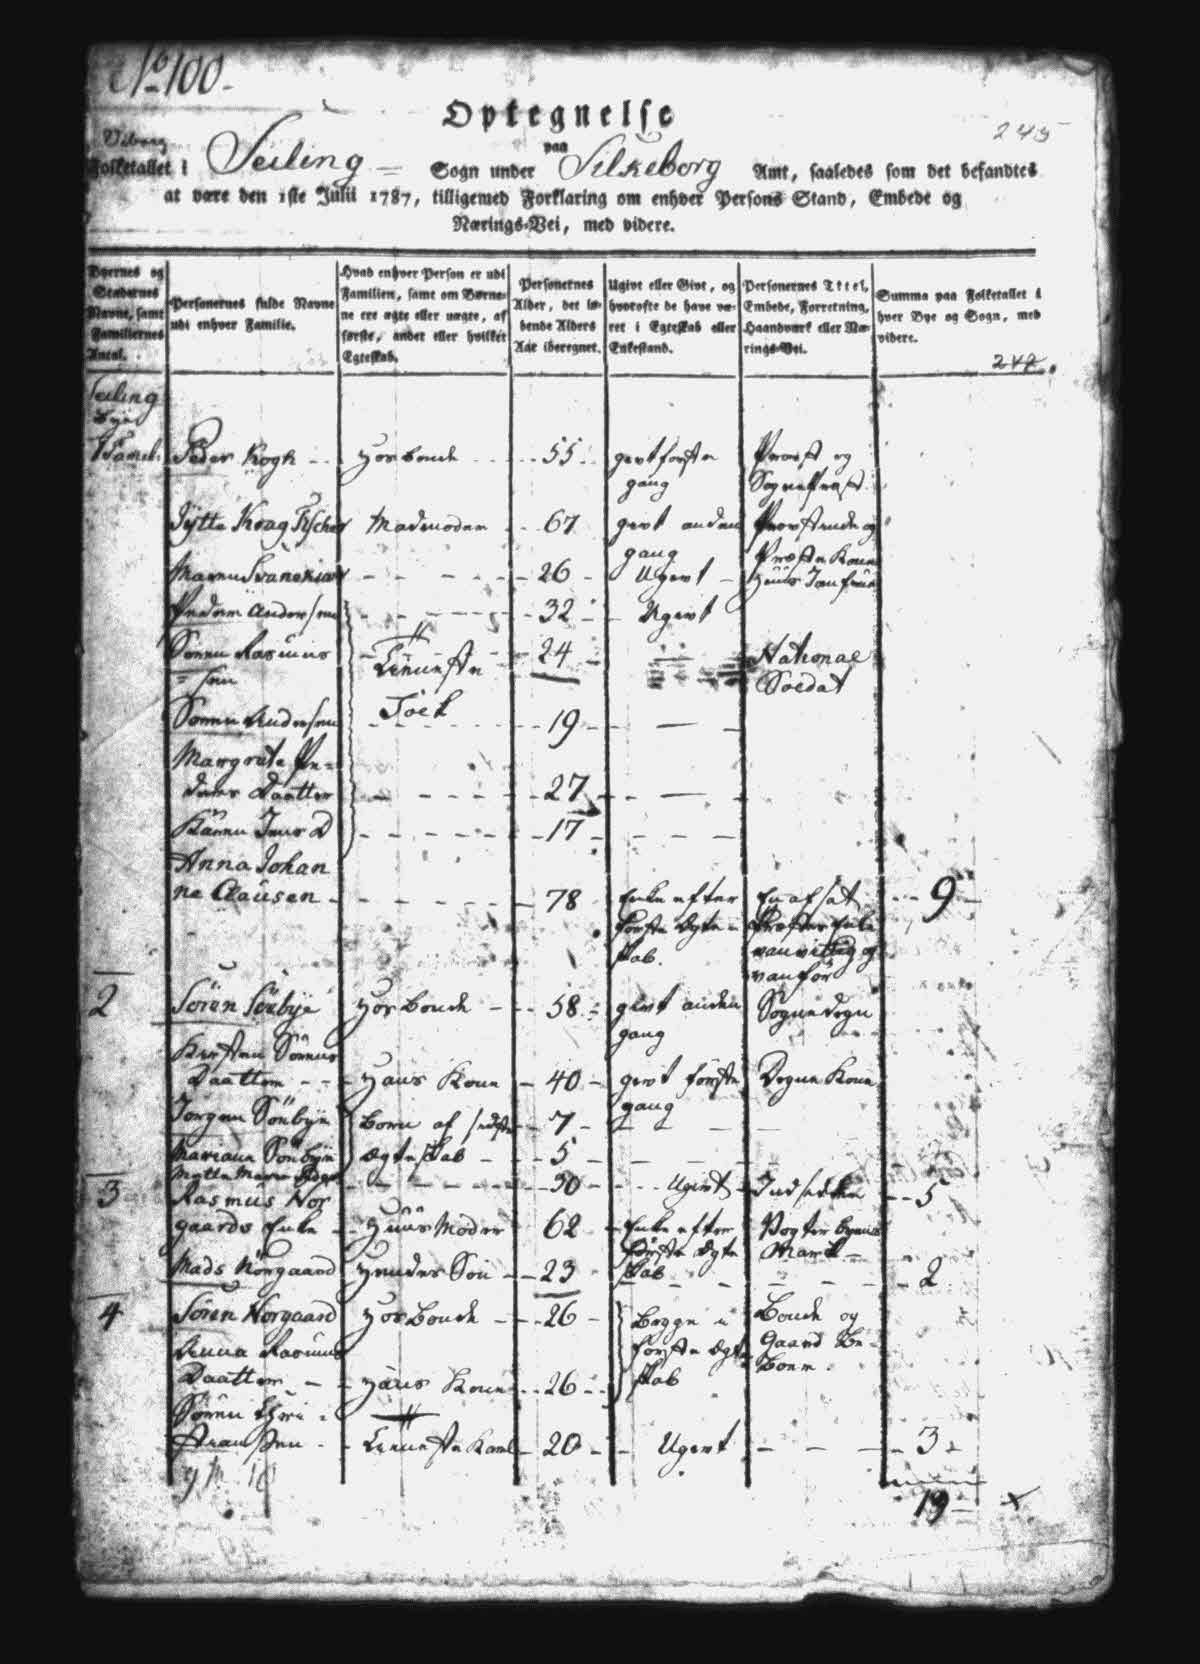 No 100.
Optegnelse
245
Viborg
paa
Folketallet i Seiling Sogn under Silkeborg Amt, saaledes som det befandtes
at være den 1ste Julii 1787, tilligemed Forklaring om enhver Persons Stand, Embede og
Nærings-Vei, med videre.
Byernes og Stædernes Navne, samt Familiernes Antal.
Personernes fulde Navne udi enhver Familie.
Hvad enhver Person er udi Familien, samt om Børnene ere ægte eller uægte, af første, andet eller hvilket Egteskab.
Personernes Alder, det løbende Alders Aar iberegnet.
Ugivt eller Givt, og hvorofte de have været i Egteskab eller Enkestand.
Personernes Titel, Embede, Forretning, Haandværk eller Nærings-Vei.
Summa paa Folketallet i hver Bye og Sogn, med videre.
247.
Seiling
bye
1 Famil: Peder Kogk Hosbonde 55 givt første Provst og
gang Sognepræst
Jytte Kraag Fischer Madmoder 67 givt anden Provstinde og
gang Præste Kone
Maren Svanekiær 26 Ugivt Huus Jomfrue
Peder Andersen 32 Ugivt
Søren Rasmus 24 National
=sen Tieneste Soldat
Søren Andersen Folk 19
Margrete Pe=
ders Daatter 27
Karen Jens D 17
Anna Johan
ne Clausen 78 Enke efter En afsat 9
første Ægte= Præstes Enke
skab. vanvittig og
vanför
2 Sören Sönbye Hosbonde 58 givt anden Sognedegn
gang
Kirsten Sörens
Daatter Hans Kone 40 givt første Degne Kone
gang
Jørgen Sönbye Børn af sidste 7
Mariane Sönbye Ægteskab 5
Mette Marie 30 Ugivt Indsidder 5
3 Rasmus Nor
gaards Enke Huus Moder 62 Enke efter Vogter byens
første Ægte Mark
Mads Nörgaard Hendes Søn 23 skab 2
4 Sören Norgaard Hosbonde 26 Begge i Bonde og
første Ægte Gaard Be=
Anna Rasmus skab boere.
Daatter Hans Kone 26
Sören Chri=
stiansen Tieneste Karl 20 Ugivt 3
19